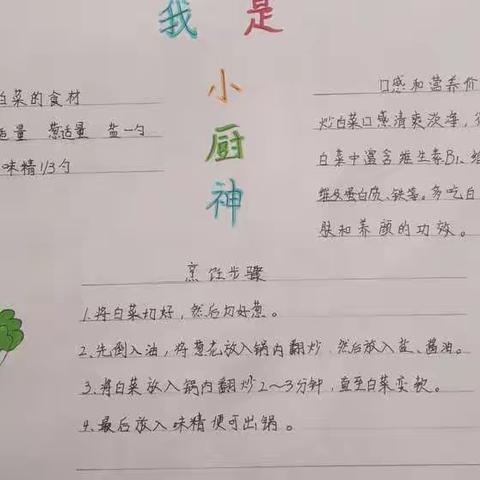 我是
小
厨
神
白菜的食材
适量 葱适量 盐一勺
味精1/3勺
口感和营养价
炒白菜口感清爽淡薄,
白菜中富含维生素B₁、维
维及蛋白质、铁等。多吃白
肤和养颜的功效。
烹饪步骤
1.将白菜切好,然后切好葱。
2.先倒入油,将葱花放入锅内翻炒,然后放入盐、酱油。
3.将白菜放入锅内翻炒2~3分钟,直至白菜变软。
4.最后放入味精便可出锅。